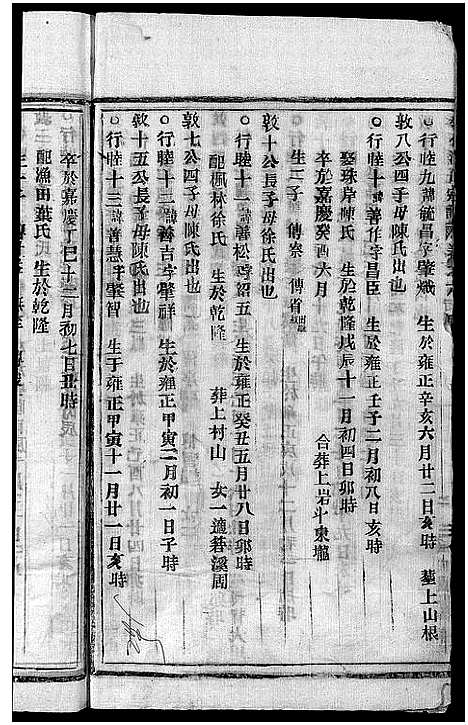 ○行睦九諱毓昌字肇熾　生於雍正辛亥六月廿二日亥時　塟上山根
敦八公四子母陳氏出也
○行睦十諱善作字昌臣　生於雍正壬子二月初八日亥時
娶珠岸陳氏　生於乾隆戊辰十一月初四日卯時
卒於嘉慶癸酉六月　合葬上岩斗東壠
生二子　傳寮　傳省
敦十公長子母徐氏出也
○行睦十一諱松字紹五　生於雍正癸丑五月廿八日卯時
配楓林徐氏　生於乾隆　葬上村山　女一適碧溪周
敦七公四子母陳氏出也
○行睦十二諱善吉字肇祥　生於雍正甲寅二月初一日子時
敦十五公長子母陳氏出也
○行睦十三諱善慧字肇智　生于雍正甲寅十一月廿一日亥時
卒於嘉慶丁巳十二月初七日丑時
配漁田葉氏　生於乾隆